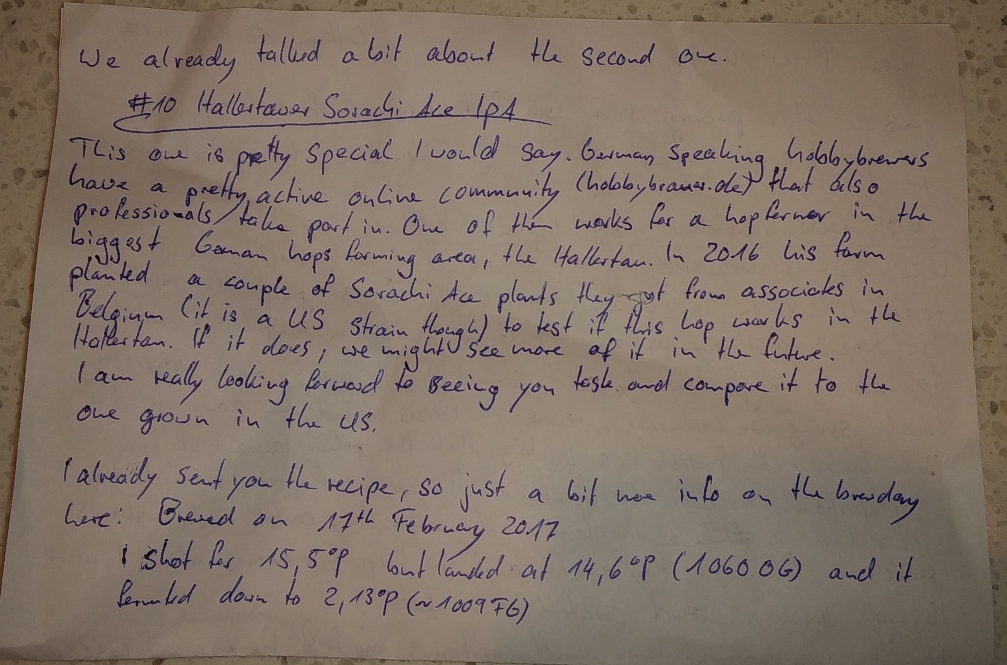 We already talked a bit about the second one.
#10 Hallertauer Sorachi Ace IPA
This one is pretty special I would say. German speaking hobbybrewers
have a pretty active online community (hobbybrauer.de) that also
professionals take part in. One of them works for a hop farmer in the
biggest German hops farming area, the Hallertau. In 2016 his farm
planted a couple of Sorachi Ace plants they got from associates in
Belgium (it is a US strain though) to test if this hop works in the
Hallertau. If it does, we might see more of it in the future.
I am really looking forward to seeing you taste and compare it to the
one grown in the US.
I already sent you the recipe, so just a bit more info on the brewday
here: Brewed on 17th February 2017
I shot for 15,5°P but landed at 14,6°P (1060 OG) and it
fermented down to 2,13°P (~1009 FG)